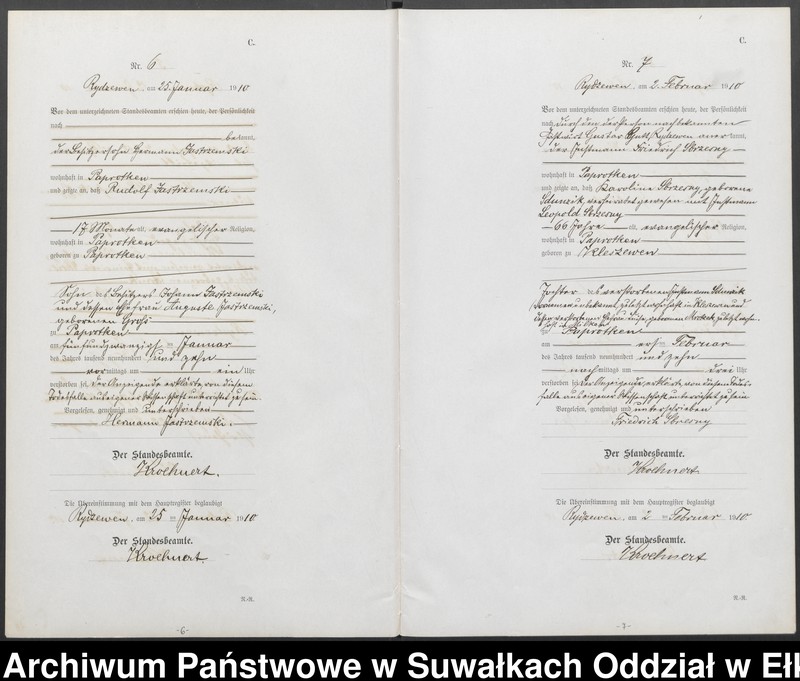 C.
Nr. 6
Rydzewen, am 25. Januar 1910
Vor dem unterzeichneten Standesbeamten erschien heute, der Persönlichkeit
nach
bekannt,
der Besitzersohn Hermann Jastrzemski
wohnhaft in Paprotken
und zeigte an, daß Rudolf Jastrzemski
17 Monate alt, evangelischer Religion,
wohnhaft in Paprotken
geboren zu Paprotken
Sohn des Besitzers Johann Jastrzemski
und dessen Ehefrau Auguste Jastrzemski,
geborenen
zu Paprotken
am fünfundzwanzigsten Januar
des Jahres tausend neunhundert und zehn
vormittags um ein Uhr
verstorben sei. Der Anzeigende erklärte, von diesem
Todesfalle aus eigener Wissenschaft unterrichtet zu sein.
Vorgelesen, genehmigt und unterschrieben
Hermann Jastrzemski.
Der Standesbeamte.
Kroehnert.
Die Übereinstimmung mit dem Hauptregister beglaubigt
Rydzewen, am 25 ten Januar 1910
Der Standesbeamte.
Kroehnert.
R.-R.
-6-
C.
Nr. 7
Rydzewen, am 2. Februar 1910
Vor dem unterzeichneten Standesbeamten erschien heute, der Persönlichkeit
nach durch den der Person nach bekannten
Gustav Rydzewen anerkannt,
der Instmann Friedrich
wohnhaft in Paprotken
und zeigte an, daß Karoline geborene
verheiratet gewesen mit Instmann
Leopold
66 Jahre alt, evangelischer Religion,
wohnhaft in Paprotken
geboren zu Kleszewen
Tochter des verstorbenen Instmann
zu Paprotken
am ersten Februar
des Jahres tausend neunhundert und zehn
nachmittags um drei Uhr
verstorben sei. Der Anzeigende erklärte, von diesem Todes-
falle aus eigener Wissenschaft unterrichtet zu sein
Vorgelesen, genehmigt und unterschrieben
Friedrich
Der Standesbeamte.
Kroehnert
Die Übereinstimmung mit dem Hauptregister beglaubigt
Rydzewen, am 2 ten Februar 1910.
Der Standesbeamte.
Kroehnert
R.-R.
-7-
Archiwum Państwowe w Suwałkach Oddział w Ełk